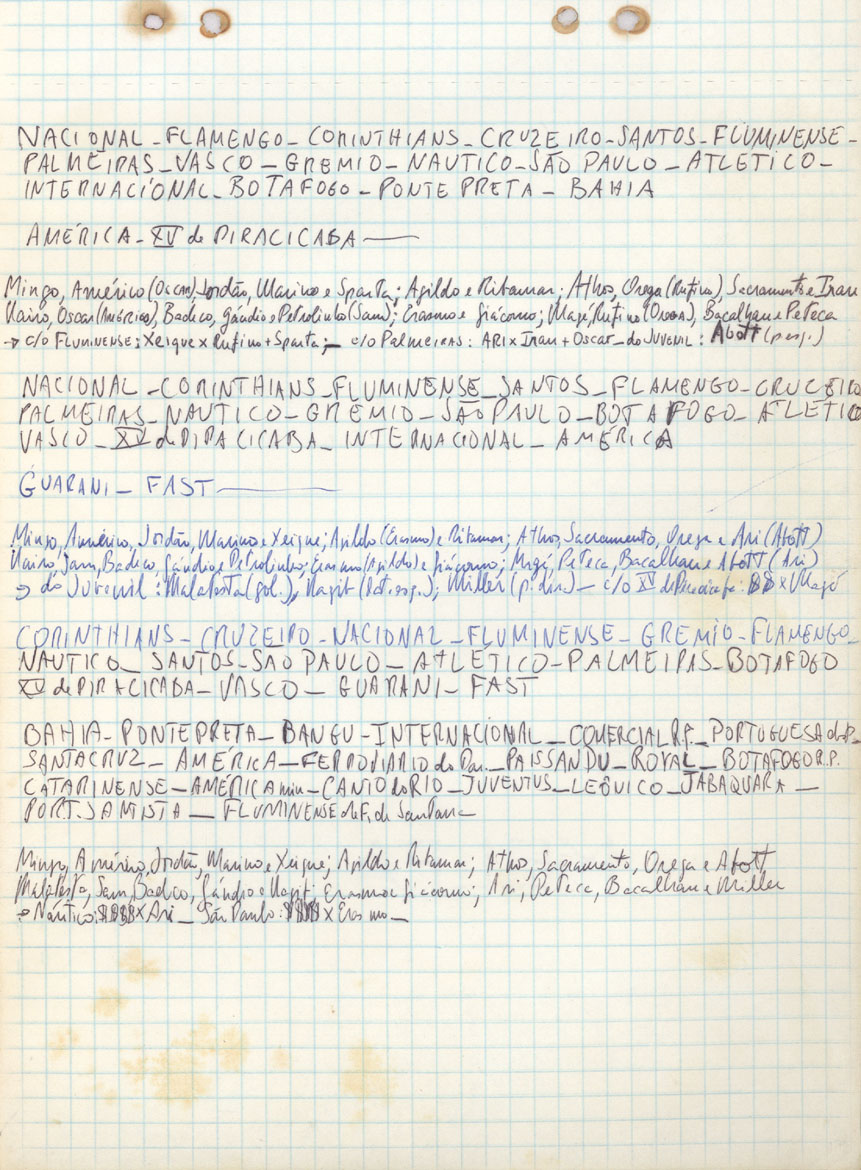 NACIONAL - FLAMENGO - CORINTHIANS - CRUZEIRO - SANTOS - FLUMINENSE -
PALMEIRAS - VASCO - GREMIO - NAUTICO - SÃO PAULO - ATLÉTICO -
INTERNACIONAL - BOTAFOGO - PONTE PRETA - BAHIA
AMÉRICA - XV de PIRACICABA -
Mingo, Américo (Oscar), Jordão, Marino e Sparta; Agildo e Ritamar; Athos, Orega (Rufino), Sacramento e Iran
Nairo, Oscar (Américo), Badeco, Gáudio e Petrolinho (Sam); Erasmo e Giácomo; Magé, Rufino (Orega), Bacalhau e Peteca
→ c/o FLUMINENSE: Xerique x Rufino + Sparta; - c/o Palmeiras: ARI x Iran + Oscar - do JUVENIL: Abott (p.esq.)
NACIONAL - CORINTHIANS - FLUMINENSE - SANTOS - FLAMENGO - CRUZEIRO
PALMEIRAS - NAUTICO - GREMIO - SÃO PAULO - BOTAFOGO - ATLETICO
VASCO - XV de PIRACICABA - INTERNACIONAL - AMÉRICA
GUARANI - FAST
Mingo, Américo, Jordão, Marino e Xeique; Agildo (Erasmo) e Ritamar; Athos, Sacramento, Orega e Ari (Abott)
Nairo, Sam, Badeco, Gáudio e Petrolinho; Erasmo (Agildo) e Giácomo; Magé, Peteca, Bacalhau e Abott (Ari)
→ do Juvenil: Malatesta (gol.); Nagit (lat.esq.); Miller (p.dir.) - c/o XV de Piracicaba: x Magé
CORINTHIANS - CRUZEIRO - NACIONAL - FLUMINENSE - GREMIO - FLAMENGO -
NAUTICO - SANTOS - SÃO PAULO - ATLÉTICO - PALMEIRAS - BOTAFOGO
XV de PIRACICABA - VASCO - GUARANI - FAST
BAHIA - PONTE PRETA - BANGU - INTERNACIONAL - COMERCIAL R.P. - PORTUGUESA de
SANTA CRUZ - AMÉRICA - FERROVIARIO do Par. - PAISSANDU - ROYAL - BOTAFOGO R.P.
CATARINENSE - AMÉRICA min - CANTO do RIO - JUVENTUS - LEÔUICO - JABAQUARA -
PORT. SANTISTA - FLUMINENSE de F. de Santana
Mingo, Américo, Jordão, Marino e Xeique; Agildo e Ritamar; Athos, Sacramento, Orega e Abott
Malatesta, Sam, Badeco, Gáudio e Nagit; Erasmo e Giácomo; Ari, Peteca, Bacalhau e Miller
→ Náutico: x Ari - São Paulo: x Erasmo -